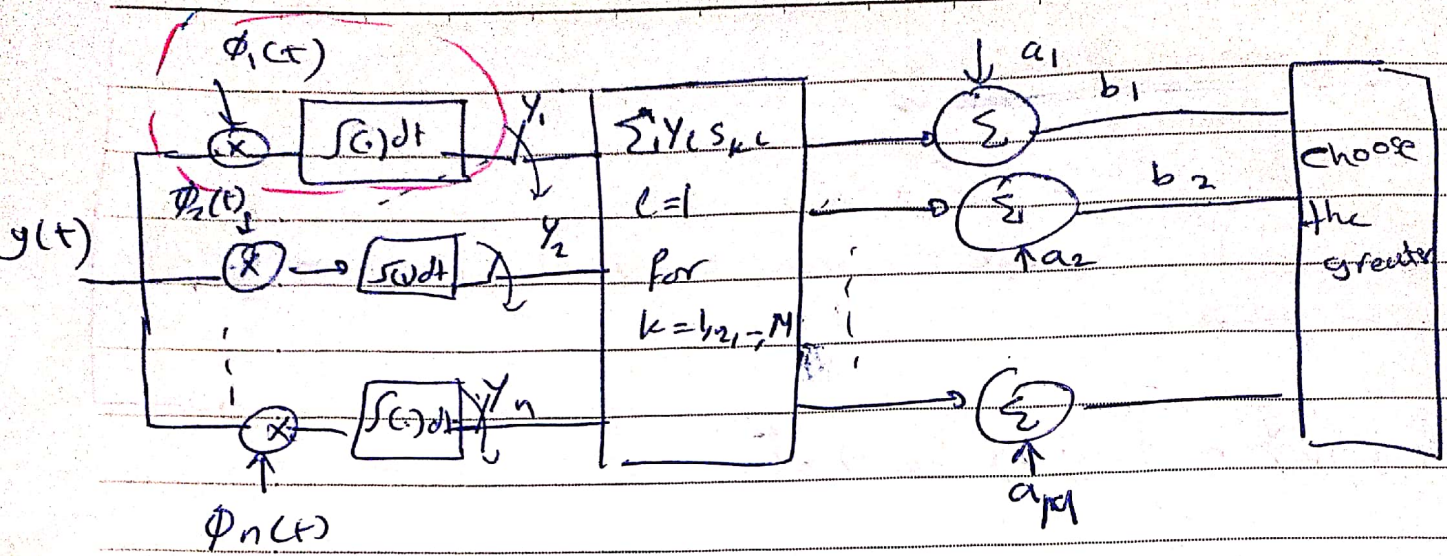 ϕ₁(t)
∫(·)dt
Y₁
ϕ₂(t)
y(t)
∫(·)dt
Y₂
ϕn(t)
∫(·)dt
Yn
n
Σ Yℓ Skℓ
ℓ=1
for
k=1,2,-,M
a₁
Σ
b₁
Σ
b₂
a₂
Σ
aM
choose
the
greater